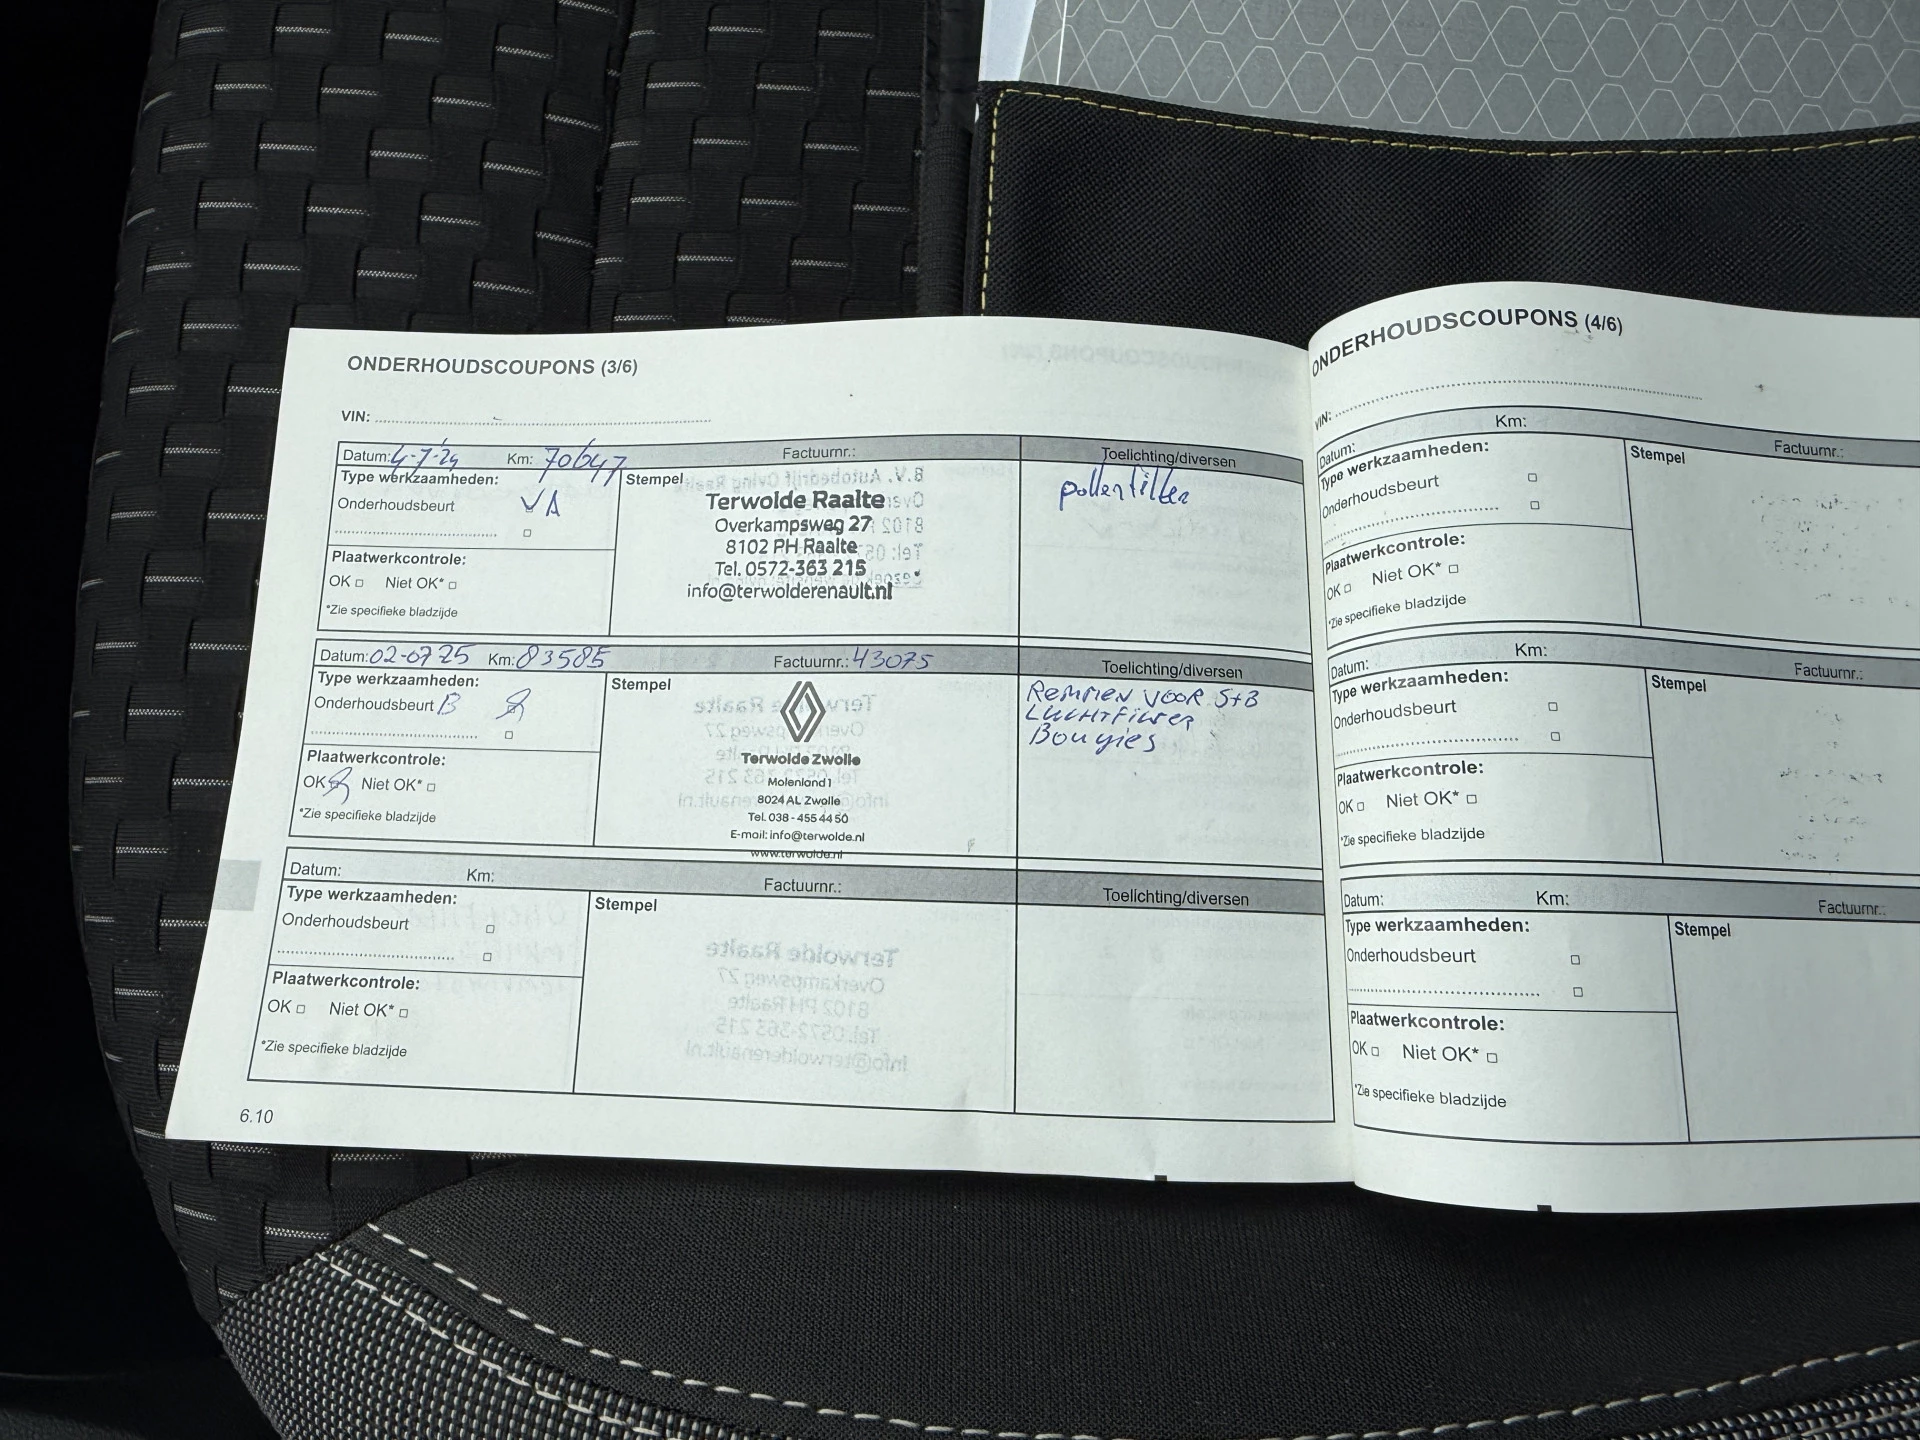 ONDERHOUDSCOUPONS (3/6)
VIN:
Datum: 4-7-24 Km: 70647 Factuurnr.: Toelichting/diversen
Type werkzaamheden:
Onderhoudsbeurt VA
Plaatwerkcontrole:
OK Niet OK*
*Zie specifieke bladzijde
Stempel
Terwolde Raalte
Overkampsweg 27
8102 PH Raalte
Tel. 0572-363 215
info@terwolderenault.nl
pollenfilter
Datum: 02-07 25 Km: 83585 Factuurnr.: 43075 Toelichting/diversen
Type werkzaamheden:
Onderhoudsbeurt B
Plaatwerkcontrole:
OK Niet OK*
*Zie specifieke bladzijde
Stempel
Terwolde Zwolle
Molenland 1
8024 AL Zwolle
Tel. 038 - 455 44 50
E-mail: info@terwolde.nl
www.terwolde.nl
Remmen voor S+B
Luchtfilter
Bougies
Datum: Km: Factuurnr.: Toelichting/diversen
Type werkzaamheden:
Onderhoudsbeurt
Plaatwerkcontrole:
OK Niet OK*
*Zie specifieke bladzijde
Stempel
6.10
ONDERHOUDSCOUPONS (4/6)
VIN:
Datum: Km: Factuurnr.:
Type werkzaamheden:
Onderhoudsbeurt
Plaatwerkcontrole:
OK Niet OK*
*Zie specifieke bladzijde
Stempel
Datum: Km: Factuurnr.:
Type werkzaamheden:
Onderhoudsbeurt
Plaatwerkcontrole:
OK Niet OK*
*Zie specifieke bladzijde
Stempel
Datum: Km: Factuurnr.:
Type werkzaamheden:
Onderhoudsbeurt
Plaatwerkcontrole:
OK Niet OK*
*Zie specifieke bladzijde
Stempel